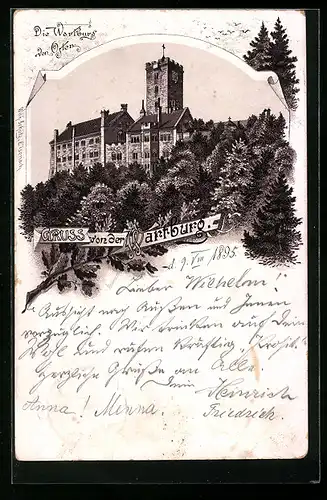 Die Wartburg
von Osten
GRUSS von der Wartburg.
d. 9. VIII 1895.
Lieber Wilhelm!
Aussicht nach Außen und Innen
vorzüglich. Wir trinken auf Dein
Wohl und rufen kräftig „Prosit“.
Herzliche Grüße an Alle.
Dein Heinrich
Anna! Minna. Friedrich